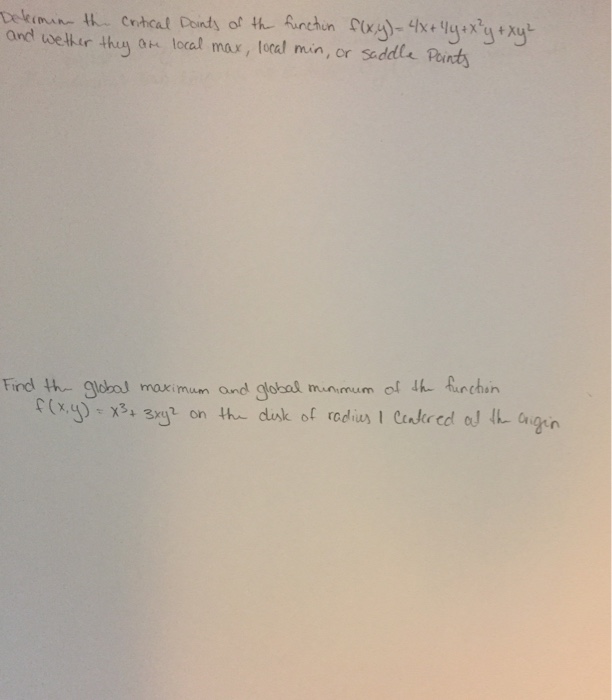 Determine the critical Points of the function f(x,y)= 4x+4y+x²y+xy²
and wether they are local max, local min, or saddle Points
Find the global maximum and global minimum of the function
f(x,y) = x³+ 3xy² on the disk of radius 1 Centered at the origin